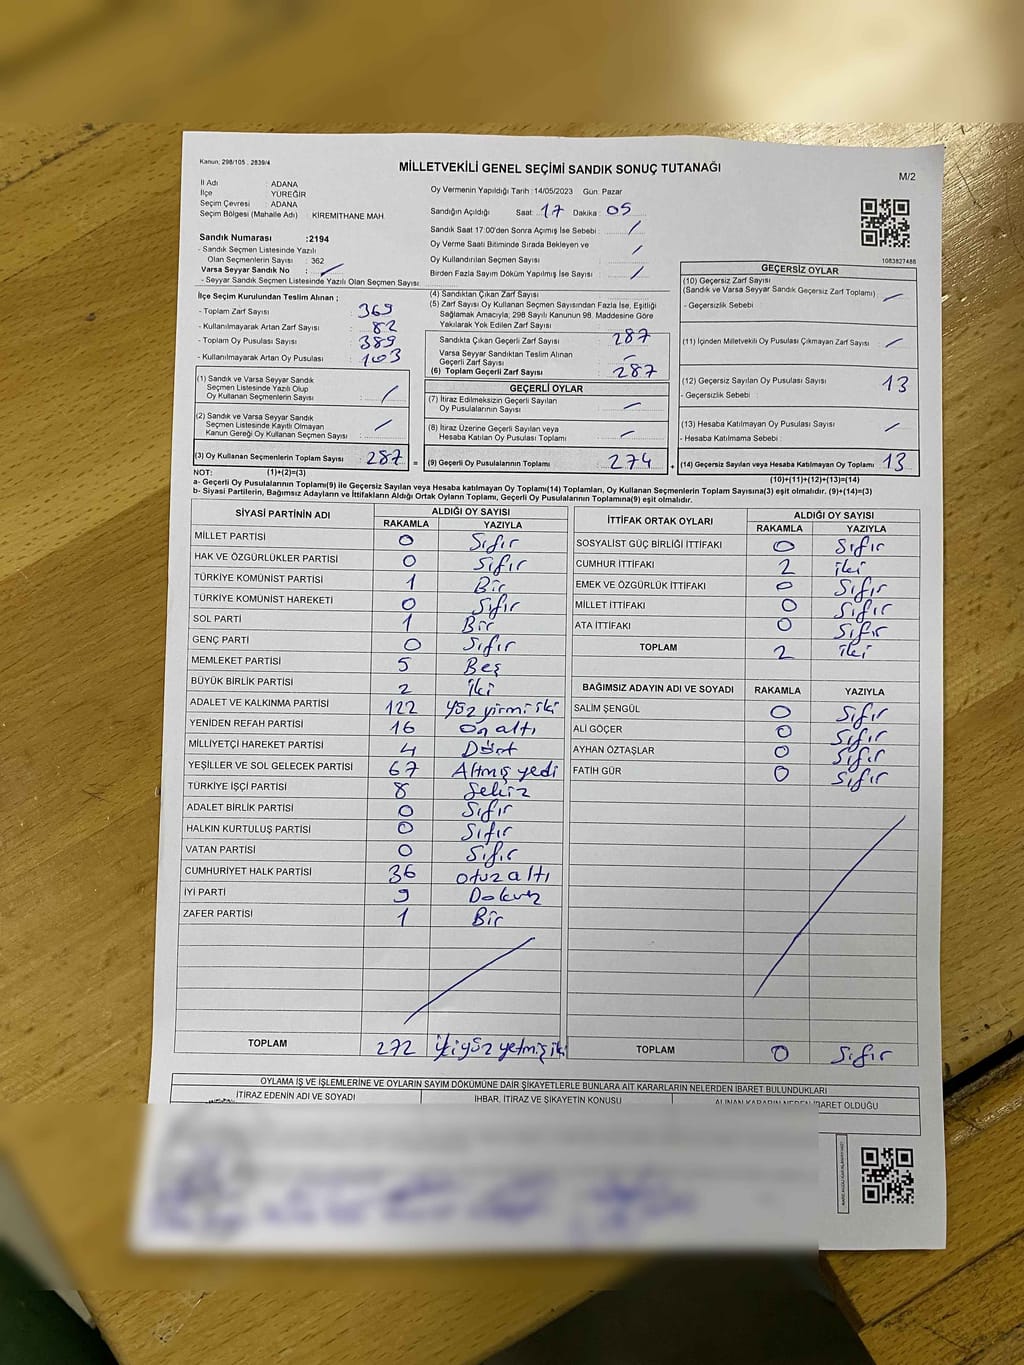 Kanun; 298/105 , 2839/4
MİLLETVEKİLİ GENEL SEÇİMİ SANDIK SONUÇ TUTANAĞI
M/2
İl Adı : ADANA
İlçe : YÜREĞİR
Seçim Çevresi : ADANA
Seçim Bölgesi (Mahalle Adı) : KIREMITHANE MAH.
Sandık Numarası :2194
- Sandık Seçmen Listesinde Yazılı
Olan Seçmenlerin Sayısı : 362
Varsa Seyyar Sandık No :
- Seyyar Sandık Seçmen Listesinde Yazılı Olan Seçmen Sayısı
Oy Vermenin Yapıldığı Tarih :14/05/2023 Gün: Pazar
Sandığın Açıldığı Saat: 17 Dakika : 05
Sandık Saat 17:00'den Sonra Açımış İse Sebebi : /
Oy Verme Saati Bitiminde Sırada Bekleyen ve
Oy Kullandırılan Seçmen Sayısı : /
Birden Fazla Sayım Döküm Yapılmış İse Sayısı : /
1083827488
İlçe Seçim Kurulundan Teslim Alınan ;
- Toplam Zarf Sayısı : 369
- Kullanılmayarak Artan Zarf Sayısı : 82
- Toplam Oy Pusulası Sayısı : 389
- Kullanılmayarak Artan Oy Pusulası : 103
(1) Sandık ve Varsa Seyyar Sandık
Seçmen Listesinde Yazılı Olup
Oy Kullanan Seçmenlerin Sayısı : /
(2) Sandık ve Varsa Seyyar Sandık
Seçmen Listesinde Kayıtlı Olmayan
Kanun Gereği Oy Kullanan Seçmen Sayısı : /
(3) Oy Kullanan Seçmenlerin Toplam Sayısı : 287
(4) Sandıktan Çıkan Zarf Sayısı
(5) Zarf Sayısı Oy Kullanan Seçmen Sayısından Fazla İse, Eşitliği
Sağlamak Amacıyla, 298 Sayılı Kanunun 98. Maddesine Göre
Yakılarak Yok Edilen Zarf Sayısı
Sandıkta Çıkan Geçerli Zarf Sayısı : 287
Varsa Seyyar Sandıktan Teslim Alınan
Geçerli Zarf Sayısı : -
(6) Toplam Geçerli Zarf Sayısı : 287
GEÇERLİ OYLAR
(7) İtiraz Edilmeksizin Geçerli Sayılan
Oy Pusulalarının Sayısı : -
(8) İtiraz Üzerine Geçerli Sayılan veya
Hesaba Katılan Oy Pusulası Toplamı : -
= (9) Geçerli Oy Pusulalarının Toplamı : 274 +
GEÇERSİZ OYLAR
(10) Geçersiz Zarf Sayısı
(Sandık ve Varsa Seyyar Sandık Geçersiz Zarf Toplamı) : -
- Geçersizlik Sebebi :
(11) İçinden Milletvekili Oy Pusulası Çıkmayan Zarf Sayısı : -
(12) Geçersiz Sayılan Oy Pusulası Sayısı : 13
- Geçersizlik Sebebi :
(13) Hesaba Katılmayan Oy Pusulası Sayısı : -
- Hesaba Katılmama Sebebi :
(14) Geçersiz Sayılan veya Hesaba Katılmayan Oy Toplamı : 13
NOT: (1)+(2)=(3) (10)+(11)+(12)+(13)=(14)
a- Geçerli Oy Pusulalarının Toplamı(9) ile Geçersiz Sayılan veya Hesaba katılmayan Oy Toplamı(14) Toplamları, Oy Kullanan Seçmenlerin Toplam Sayısına(3) eşit olmalıdır. (9)+(14)=(3)
b- Siyasi Partilerin, Bağımsız Adayların ve İttifakların Aldığı Ortak Oyların Toplamı, Geçerli Oy Pusulalarının Toplamına(9) eşit olmalıdır.
SİYASİ PARTİNİN ADI ALDIĞI OY SAYISI
RAKAMLA YAZIYLA
MİLLET PARTİSİ 0 Sıfır
HAK VE ÖZGÜRLÜKLER PARTİSİ 0 Sıfır
TÜRKİYE KOMÜNİST PARTİSİ 1 Bir
TÜRKİYE KOMÜNİST HAREKETİ 0 Sıfır
SOL PARTİ 1 Bir
GENÇ PARTİ 0 Sıfır
MEMLEKET PARTİSİ 5 Beş
BÜYÜK BİRLİK PARTİSİ 2 İki
ADALET VE KALKINMA PARTİSİ 122 Yüz yirmi iki
YENİDEN REFAH PARTİSİ 16 On altı
MİLLİYETÇİ HAREKET PARTİSİ 4 Dört
YEŞİLLER VE SOL GELECEK PARTİSİ 67 Altmış yedi
TÜRKİYE İŞÇİ PARTİSİ 8 Sekiz
ADALET BİRLİK PARTİSİ 0 Sıfır
HALKIN KURTULUŞ PARTİSİ 0 Sıfır
VATAN PARTİSİ 0 Sıfır
CUMHURİYET HALK PARTİSİ 36 otuz altı
İYİ PARTİ 9 Dokuz
ZAFER PARTİSİ 1 Bir
TOPLAM 272 İki yüz yetmiş iki
İTTİFAK ORTAK OYLARI ALDIĞI OY SAYISI
RAKAMLA YAZIYLA
SOSYALİST GÜÇ BİRLİĞİ İTTİFAKI 0 Sıfır
CUMHUR İTTİFAKI 2 iki
EMEK VE ÖZGÜRLÜK İTTİFAKI 0 Sıfır
MİLLET İTTİFAKI 0 Sıfır
ATA İTTİFAKI 0 Sıfır
TOPLAM 2 iki
BAĞIMSIZ ADAYIN ADI VE SOYADI RAKAMLA YAZIYLA
SALİM ŞENGÜL 0 Sıfır
ALİ GÖÇER 0 Sıfır
AYHAN ÖZTAŞLAR 0 Sıfır
FATİH GÜR 0 Sıfır
TOPLAM 0 Sıfır
OYLAMA İŞ VE İŞLEMLERİNE VE OYLARIN SAYIM DÖKÜMÜNE DAİR ŞİKAYETLERLE BUNLARA AİT KARARLARIN NELERDEN İBARET BULUNDUKLARI
İTİRAZ EDENİN ADI VE SOYADI İHBAR, İTİRAZ VE ŞİKAYETİN KONUSU ALINAN KARARIN NEDEN İBARET OLDUĞU